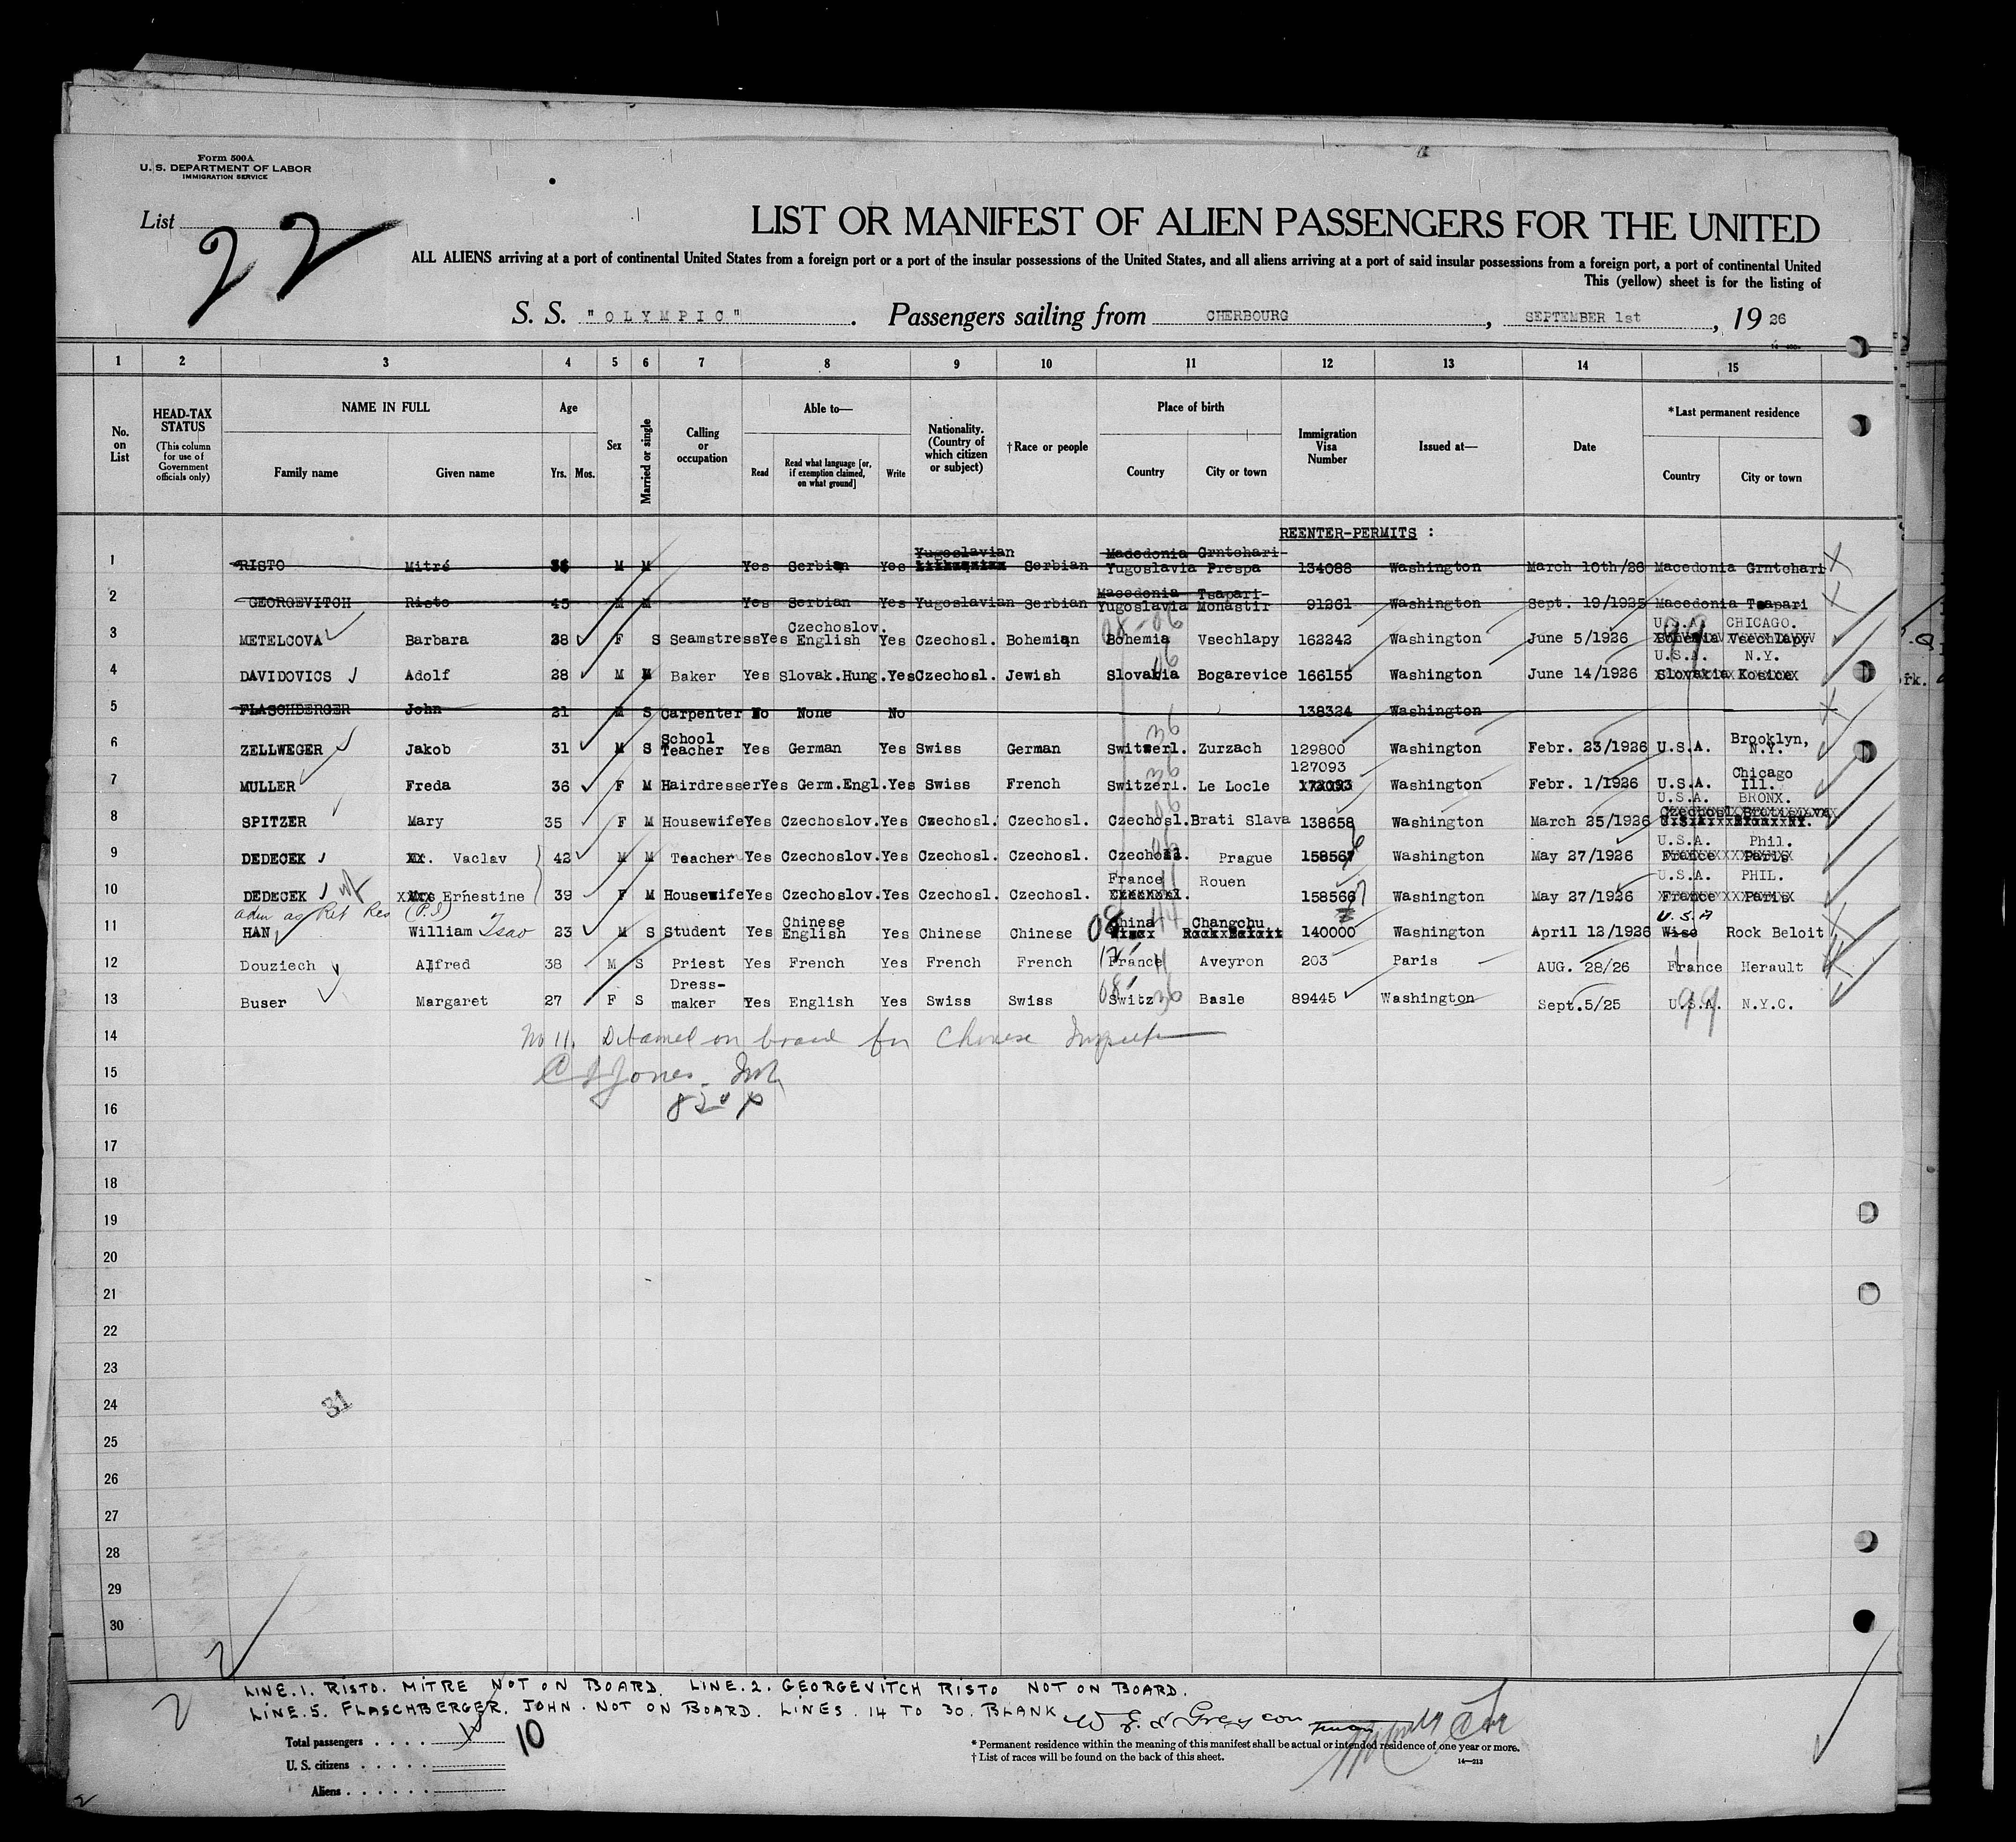 Form 500A
U. S. DEPARTMENT OF LABOR
IMMIGRATION SERVICE
List 22
LIST OR MANIFEST OF ALIEN PASSENGERS FOR THE UNITED
ALL ALIENS arriving at a port of continental United States from a foreign port or a port of the insular possessions of the United States, and all aliens arriving at a port of said insular possessions from a foreign port, a port of continental United
This (yellow) sheet is for the listing of
S. S. "OLYMPIC". Passengers sailing from CHERBOURG, SEPTEMBER 1st, 19 26
1 2 3 4 5 6 7 8 9 10 11 12 13 14 15
No. on List
HEAD-TAX STATUS
(This column for use of Government officials only)
NAME IN FULL
Family name Given name
Age
Yrs. Mos.
Sex
Married or single
Calling or occupation
Able to—
Read
Read what language [or, if exemption claimed, on what ground]
Write
Nationality. (Country of which citizen or subject)
†Race or people
Place of birth
Country City or town
Immigration Visa Number
Issued at—
Date
*Last permanent residence
Country City or town
REENTER-PERMITS :
Yugoslavian Macedonia Grntchari
1 RISTO Mitré M M Yes Serbian Yes Serbian Yugoslavia Prespa 134088 Washington March 10th/26 Macedonia Grntchari
Macedonia Tsapari
2 GEORGEVITCH Risto 45 M M Yes Serbian Yes Yugoslavian Serbian Yugoslavia Monastir 91261 Washington Sept. 19/1925 Macedonia Tsapari
Czechoslov. U.S.A. CHICAGO.
3 METELCOVA Barbara 28 F S Seamstress Yes English Yes Czechosl. Bohemian Bohemia Vsechlapy 162242 Washington June 5/1926 Bohemia Vsechlapy
U.S.A. N.Y.
4 DAVIDOVICS Adolf 28 M M Baker Yes Slovak.Hung. Yes Czechosl. Jewish Slovakia Bogarevice 166155 Washington June 14/1926 Slovakia Kosice
5 FLASCHBERGER John 21 M S Carpenter No None No 138324 Washington
School Brooklyn,
6 ZELLWEGER Jakob 31 M S Teacher Yes German Yes Swiss German Switzerl. Zurzach 129800 Washington Febr. 23/1926 U.S.A. N.Y.
127093 Chicago
7 MULLER Freda 36 F M Hairdresser Yes Germ.Engl. Yes Swiss French Switzerl. Le Locle 172093 Washington Febr. 1/1926 U.S.A. Ill.
U.S.A. BRONX.
8 SPITZER Mary 35 F M Housewife Yes Czechoslov. Yes Czechosl. Czechosl. Czechosl. Brati Slava 138658 Washington March 25/1926
U.S.A. Phil.
9 DEDECEK Vaclav 42 M M Teacher Yes Czechoslov. Yes Czechosl. Czechosl. Czechosl. Prague 158567 Washington May 27/1926 France Paris
France Rouen U.S.A. PHIL.
10 DEDECEK Ernestine 39 F M Housewife Yes Czechoslov. Yes Czechosl. Czechosl. 158566 Washington May 27/1926 France Paris
adm as Ret Res (P.I) Chinese China Changchu U.S.A
11 HAN William Tsao 23 M S Student Yes English Yes Chinese Chinese 140000 Washington April 12/1926 Wisc Rock Beloit
12 Douziech Alfred 38 M S Priest Yes French Yes French French France Aveyron 203 Paris AUG. 28/26 France Herault
Dress-
13 Buser Margaret 27 F S maker Yes English Yes Swiss Swiss Switz Basle 89445 Washington Sept.5/25 U.S.A. N.Y.C.
14 No 11. Detained on board for Chinese
15 Jones
16
17
18
19
20
21
22
23
24
31
25
26
27
28
29
30
LINE.1. RISTO. MITRE NOT ON BOARD. LINE.2. GEORGEVITCH RISTO NOT ON BOARD.
LINE.5. FLASCHBERGER. JOHN. NOT ON BOARD. LINES. 14 TO 30. BLANK
Total passengers . . . . 10
U. S. citizens . . . . .
Aliens . . . . . .
* Permanent residence within the meaning of this manifest shall be actual or intended residence of one year or more.
† List of races will be found on the back of this sheet.
14—213